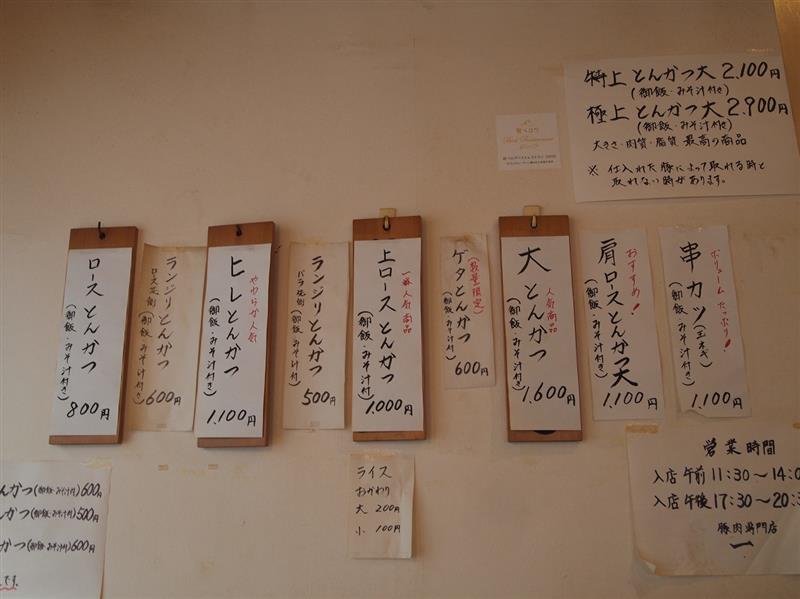 特上 とんかつ大 2.100円
(御飯・みそ汁付き)
極上 とんかつ大 2.900円
(御飯・みそ汁付き)
大きさ・肉質・脂質 最高の商品
※ 仕入れた豚によって取れる時と
取れない時があります。
ロースとんかつ
(御飯・みそ汁付き)
800円
ランジリとんかつ
ロース先側(御飯・みそ汁付)
600円
やわらか人気
ヒレとんかつ
(御飯・みそ汁付き)
1.100円
ランジリとんかつ
バラ先側(御飯・みそ汁付)
500円
一番人気商品
上ロースとんかつ
(御飯・みそ汁付)
1.000円
(数量限定)
ゲタとんかつ
(御飯・みそ汁付)
600円
人気商品
大とんかつ
(御飯・みそ汁付き)
1.600円
おすすめ!
肩ロースとんかつ大
(御飯・みそ汁付き)
1.100円
ボリュームたっぷり!
串カツ(玉ネギ)
(御飯・みそ汁付き)
1.100円
営業時間
入店 午前 11:30〜14:0
入店 午後 17:30〜20:3
豚肉専門店
一
ライス
おかわり
大 200円
小 100円
とんかつ(御飯・みそ汁付)600円
んかつ(御飯・みそ汁付)500円
かつ(御飯・みそ汁付)600円
です。